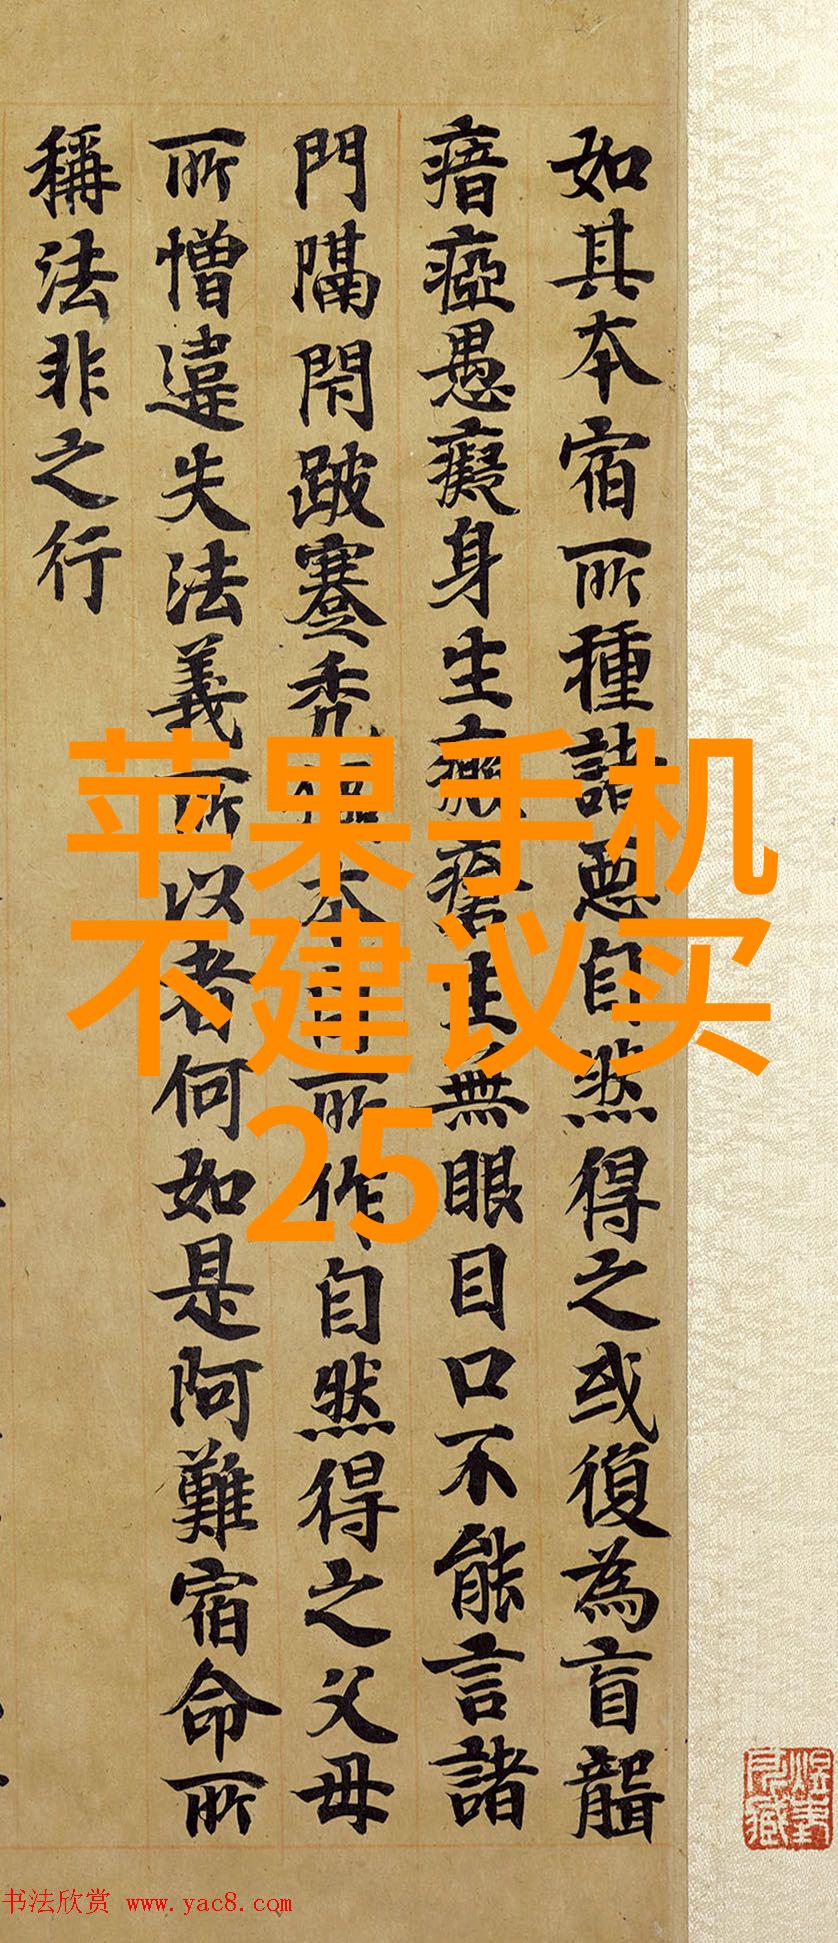 如其本宿所種諸惡自然得之或復為盲聾
瘖瘂愚癡身生癩瘡生無眼目口不能言諸
門隔閉跛蹇秃本所作自然得之父母
所憎違失法義所以者何如是阿難宿命所
稱法非之行
苹果手机
不建议买
25
书法欣赏 www.yac8.com